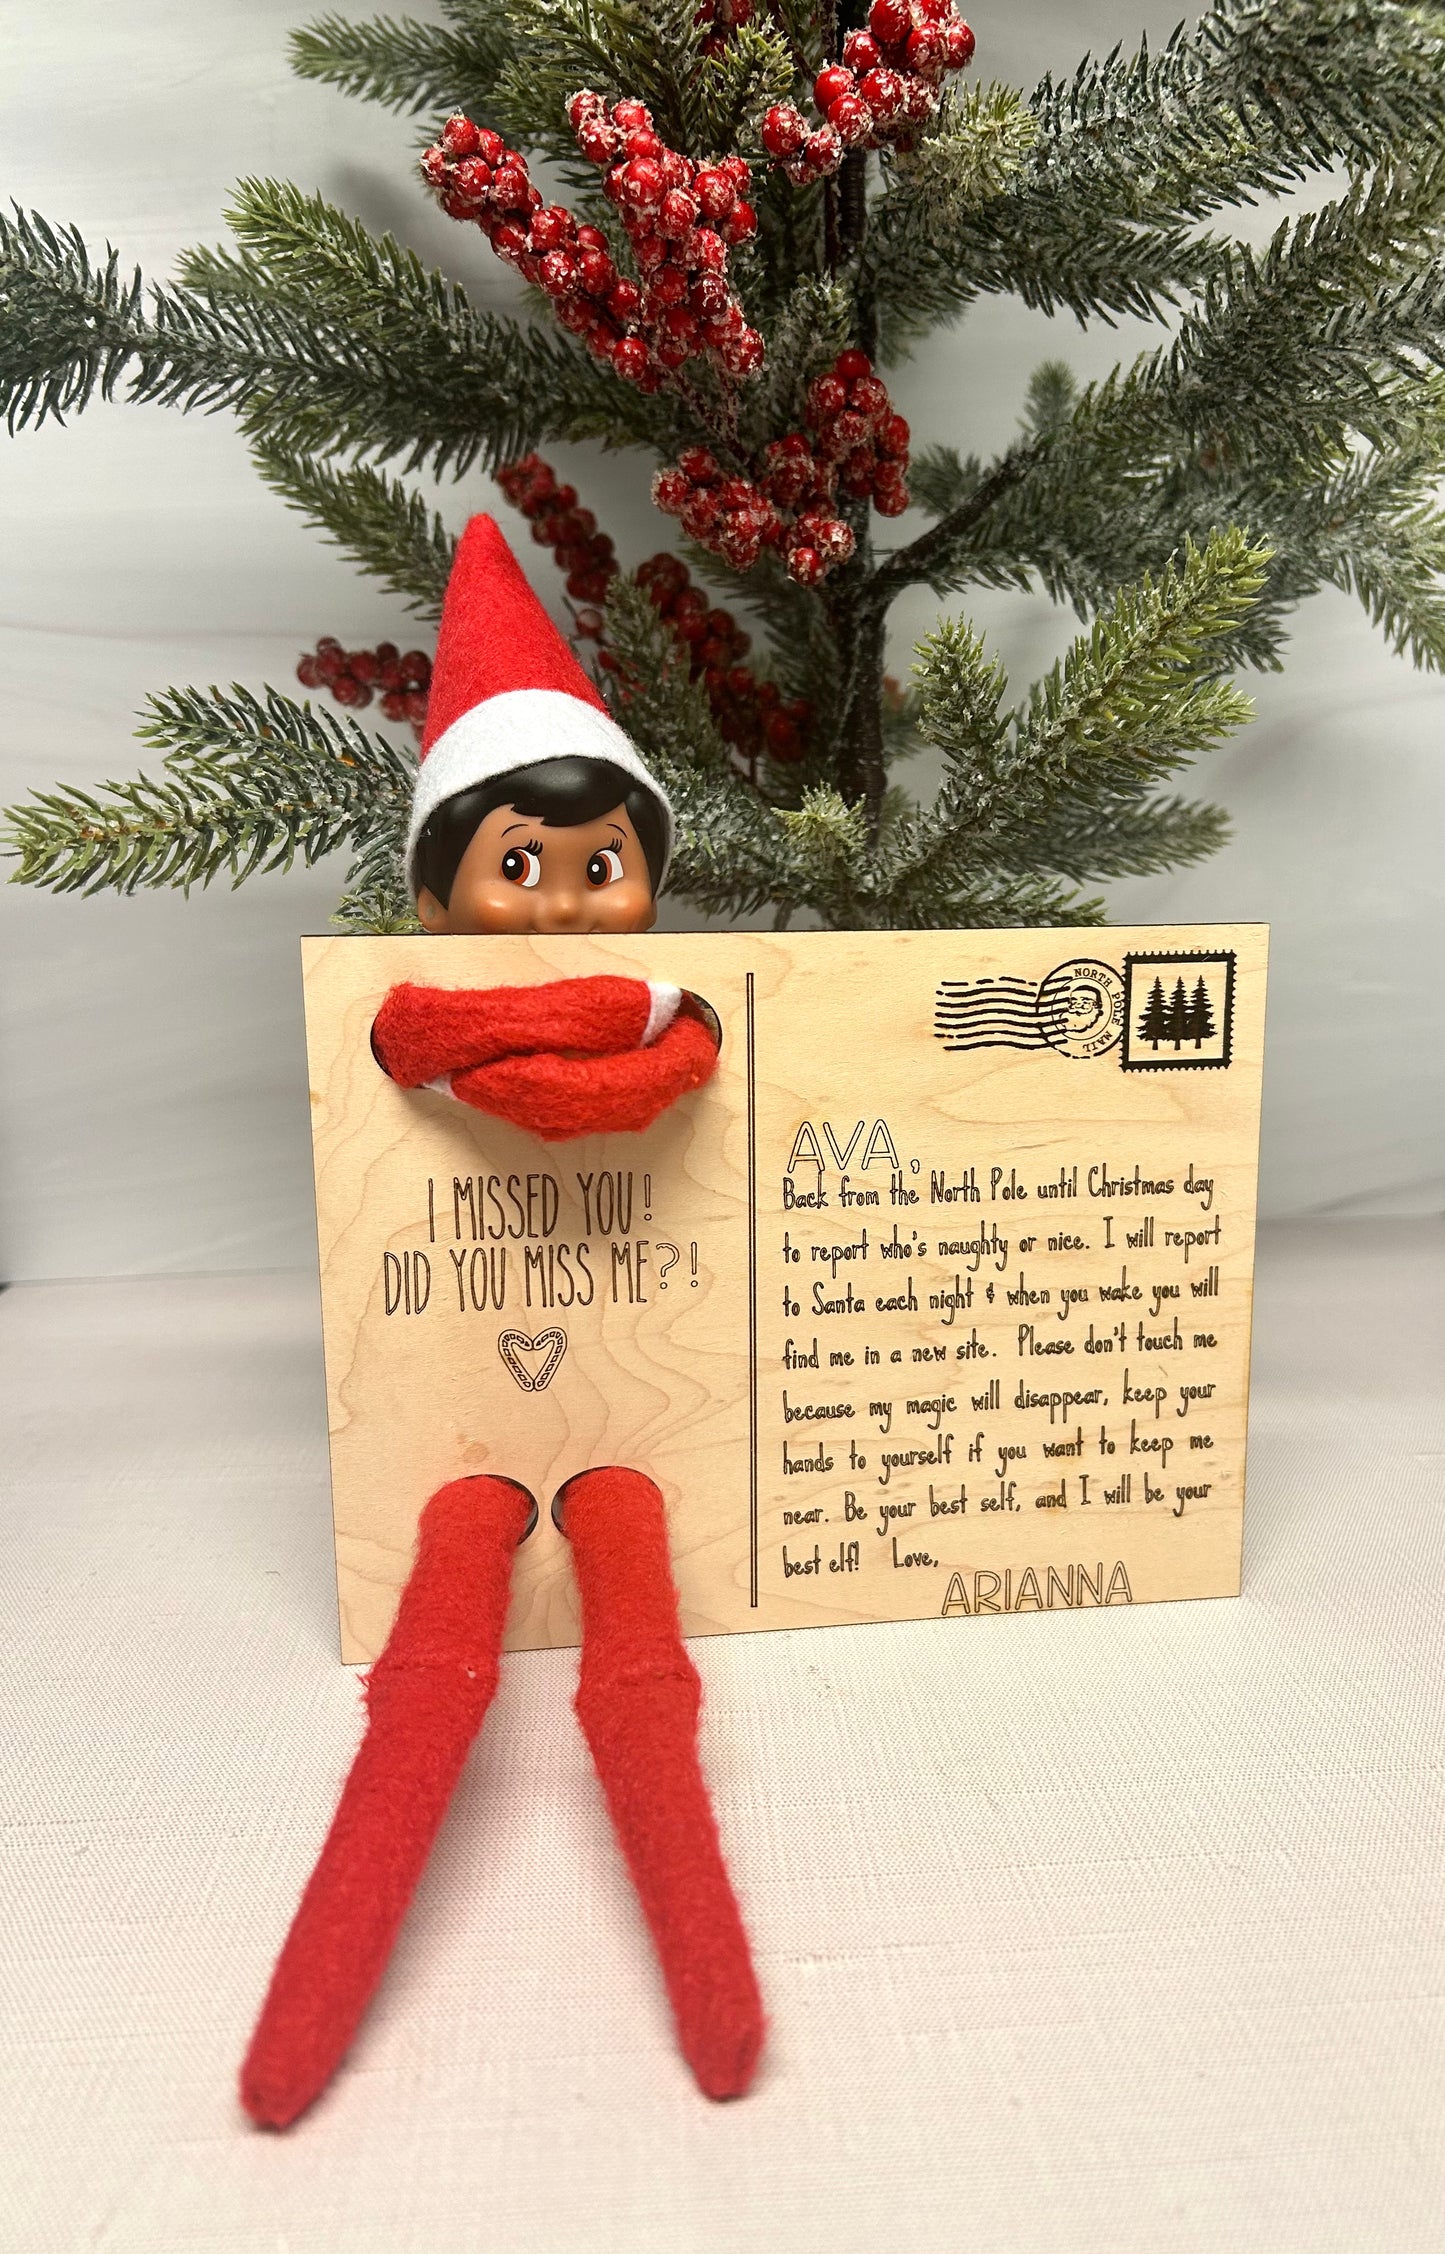 I MISSED YOU!
DID YOU MISS ME?!
NORTH POLE MAIL
AVA,
Back from the North Pole until Christmas day
to report who's naughty or nice. I will report
to Santa each night & when you wake you will
find me in a new site. Please don't touch me
because my magic will disappear, keep your
hands to yourself if you want to keep me
near. Be your best self, and I will be your
best elf! Love,
ARIANNA